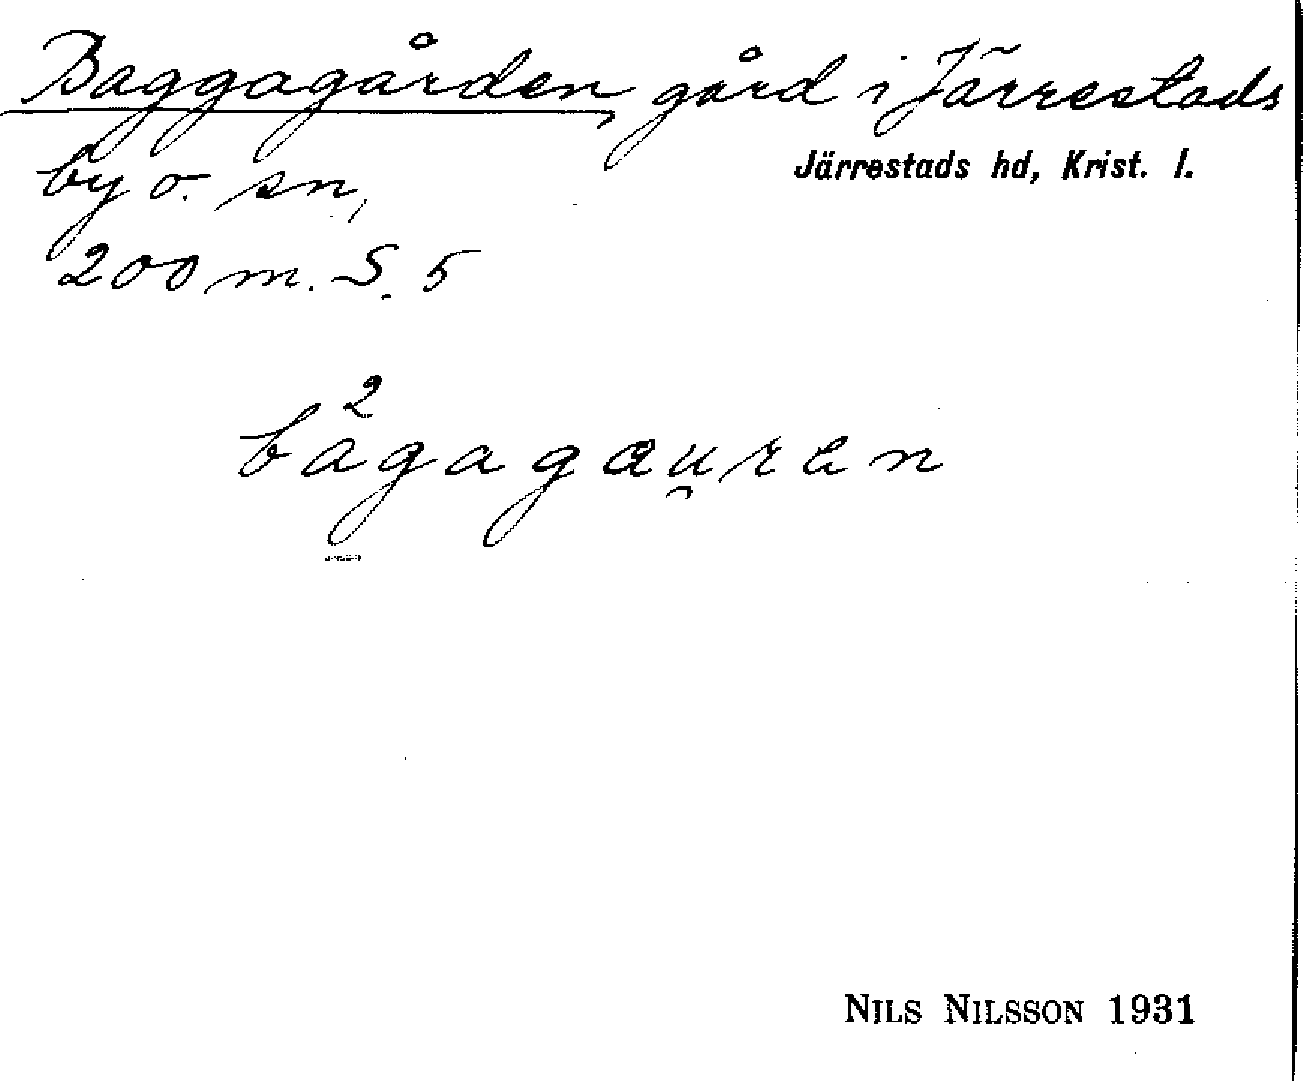 Baggagården, gård i Järrestads
by o. sn,
Järrestads hd, Krist. l.
200 m. S. 5
bà²gagæu̯ren
NILS NILSSON 1931